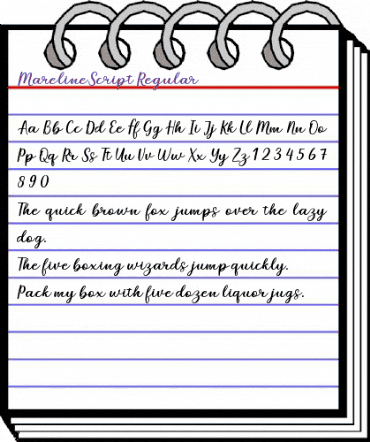 Mareline Script Regular
Aa Bb Cc Dd Ee Ff Gg Hh Ii Jj Kk Ll Mm Nn Oo
Pp Qq Rr Ss Tt Uu Vv Ww Xx Yy Zz 1 2 3 4 5 6 7
8 9 0
The quick brown fox jumps over the lazy
dog.
The five boxing wizards jump quickly.
Pack my box with five dozen liquor jugs.